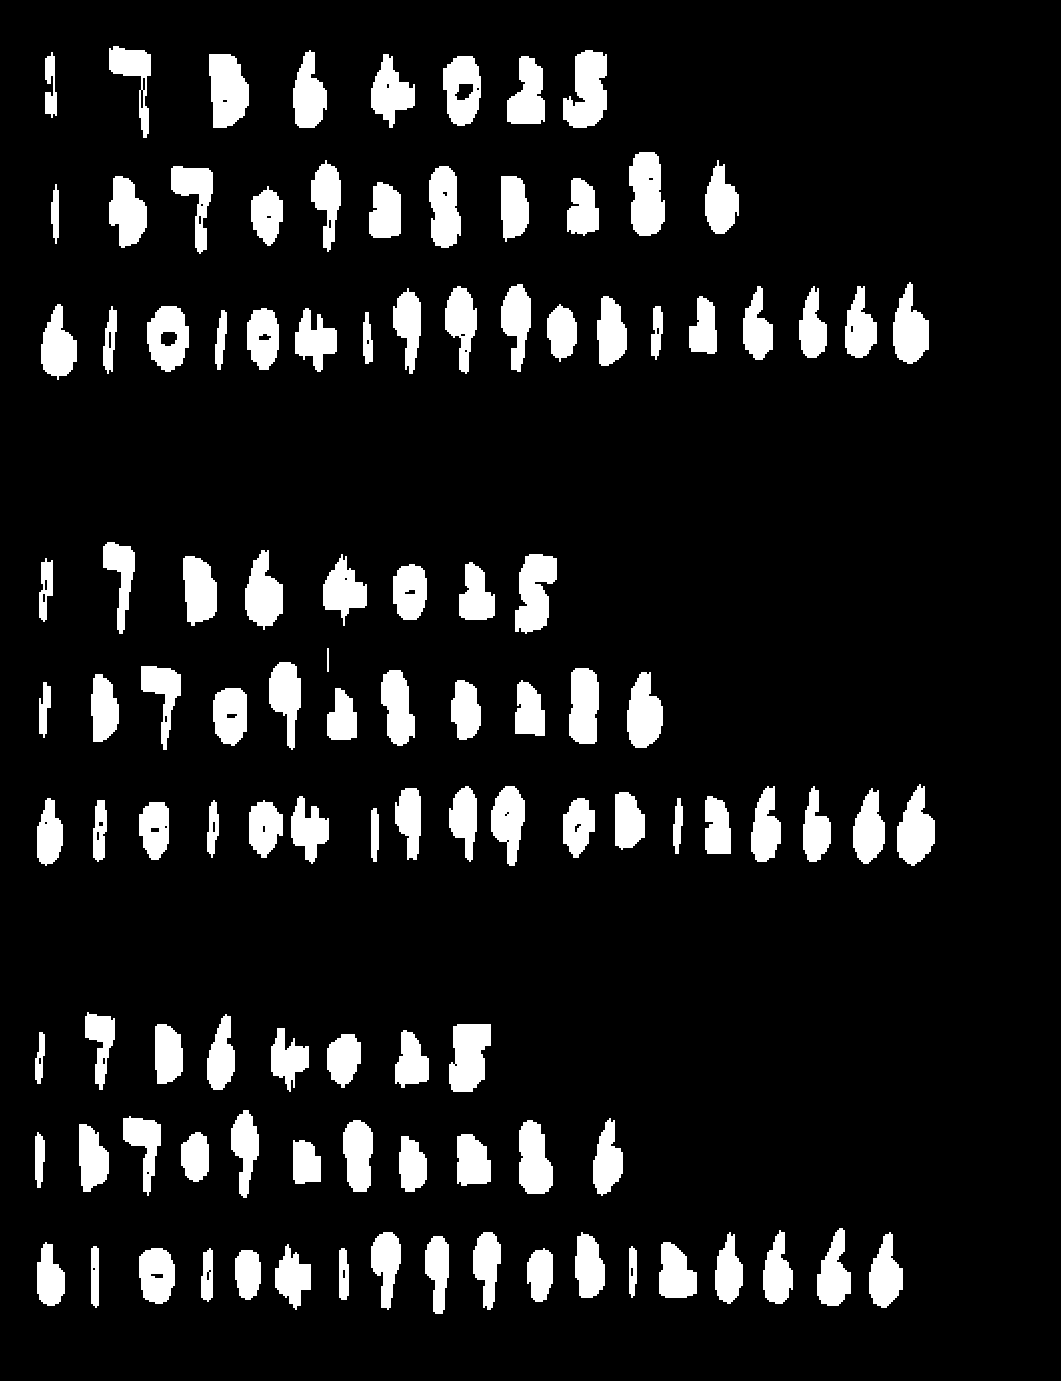 1 7 3 6 4 0 2 5
1 3 7 0 9 2 8 3 2 8 6
6 1 0 1 0 4 1 9 9 9 0 3 1 2 6 6 6 6
1 7 3 6 4 0 2 5
1 3 7 0 9 2 8 3 2 8 6
6 1 0 1 0 4 1 9 9 9 0 3 1 2 6 6 6 6
1 7 3 6 4 0 2 5
1 3 7 0 9 2 8 3 2 8 6
6 1 0 1 0 4 1 9 9 9 0 3 1 2 6 6 6 6